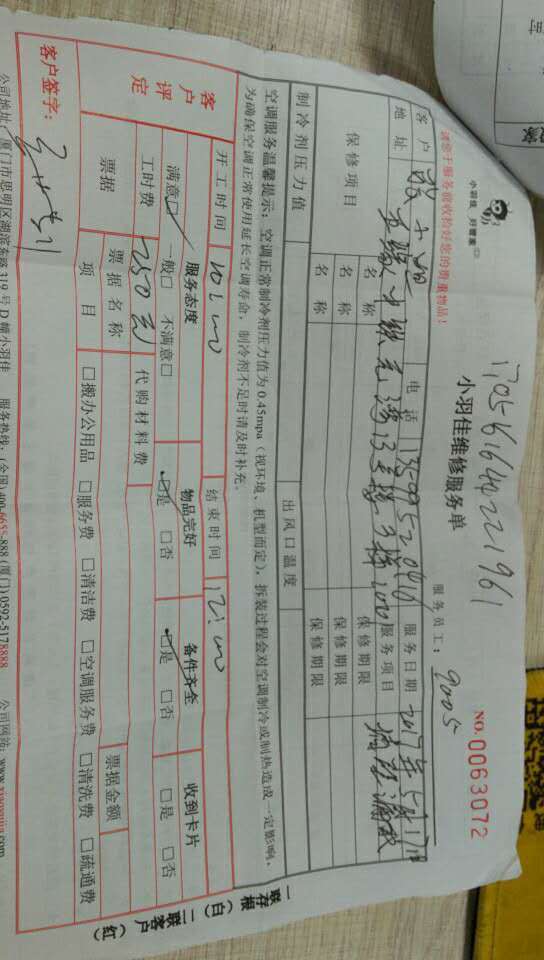 小羽佳 好管家
请您于服务前收检好您的贵重物品!
170561640221961
小羽佳维修服务单
服务员工: 9005
NO.0063072
客户 张小姐 电话 服务日期 2017年5月17日
地址 服务项目
保修项目 名称 保修期限
名称 保修期限
名称 保修期限
制冷剂压力值 出风口温度
空调服务温馨提示:空调正常制冷剂压力值为0.45mpa(视环境、机型而定),拆装过程会对空调制冷或制热造成一定影响,
为确保空调正常使用延长空调寿命,制冷剂不足时请及时补充。
开工时间 10:00 结束时间 12:00
客户评定 服务态度 物品完好 备件齐全 收到卡片
满意☑ 一般□ 不满意□ ☑是 □否 ☑是 □否 □是 □否
工时费 250元 代购材料费
票据 票据名称 票据金额
项目 □搬办公用品 □服务费 □清洁费 □空调服务费 □清洗费 □疏通费
客户签字:
公司地址:厦门市思明区湖滨东路319号D幢小羽佳 服务热线:(全国)400-6655-888 (厦门)0592-5178888 公司网站:www.xiaoyujia.com
一联存根(白)二联客户(红)